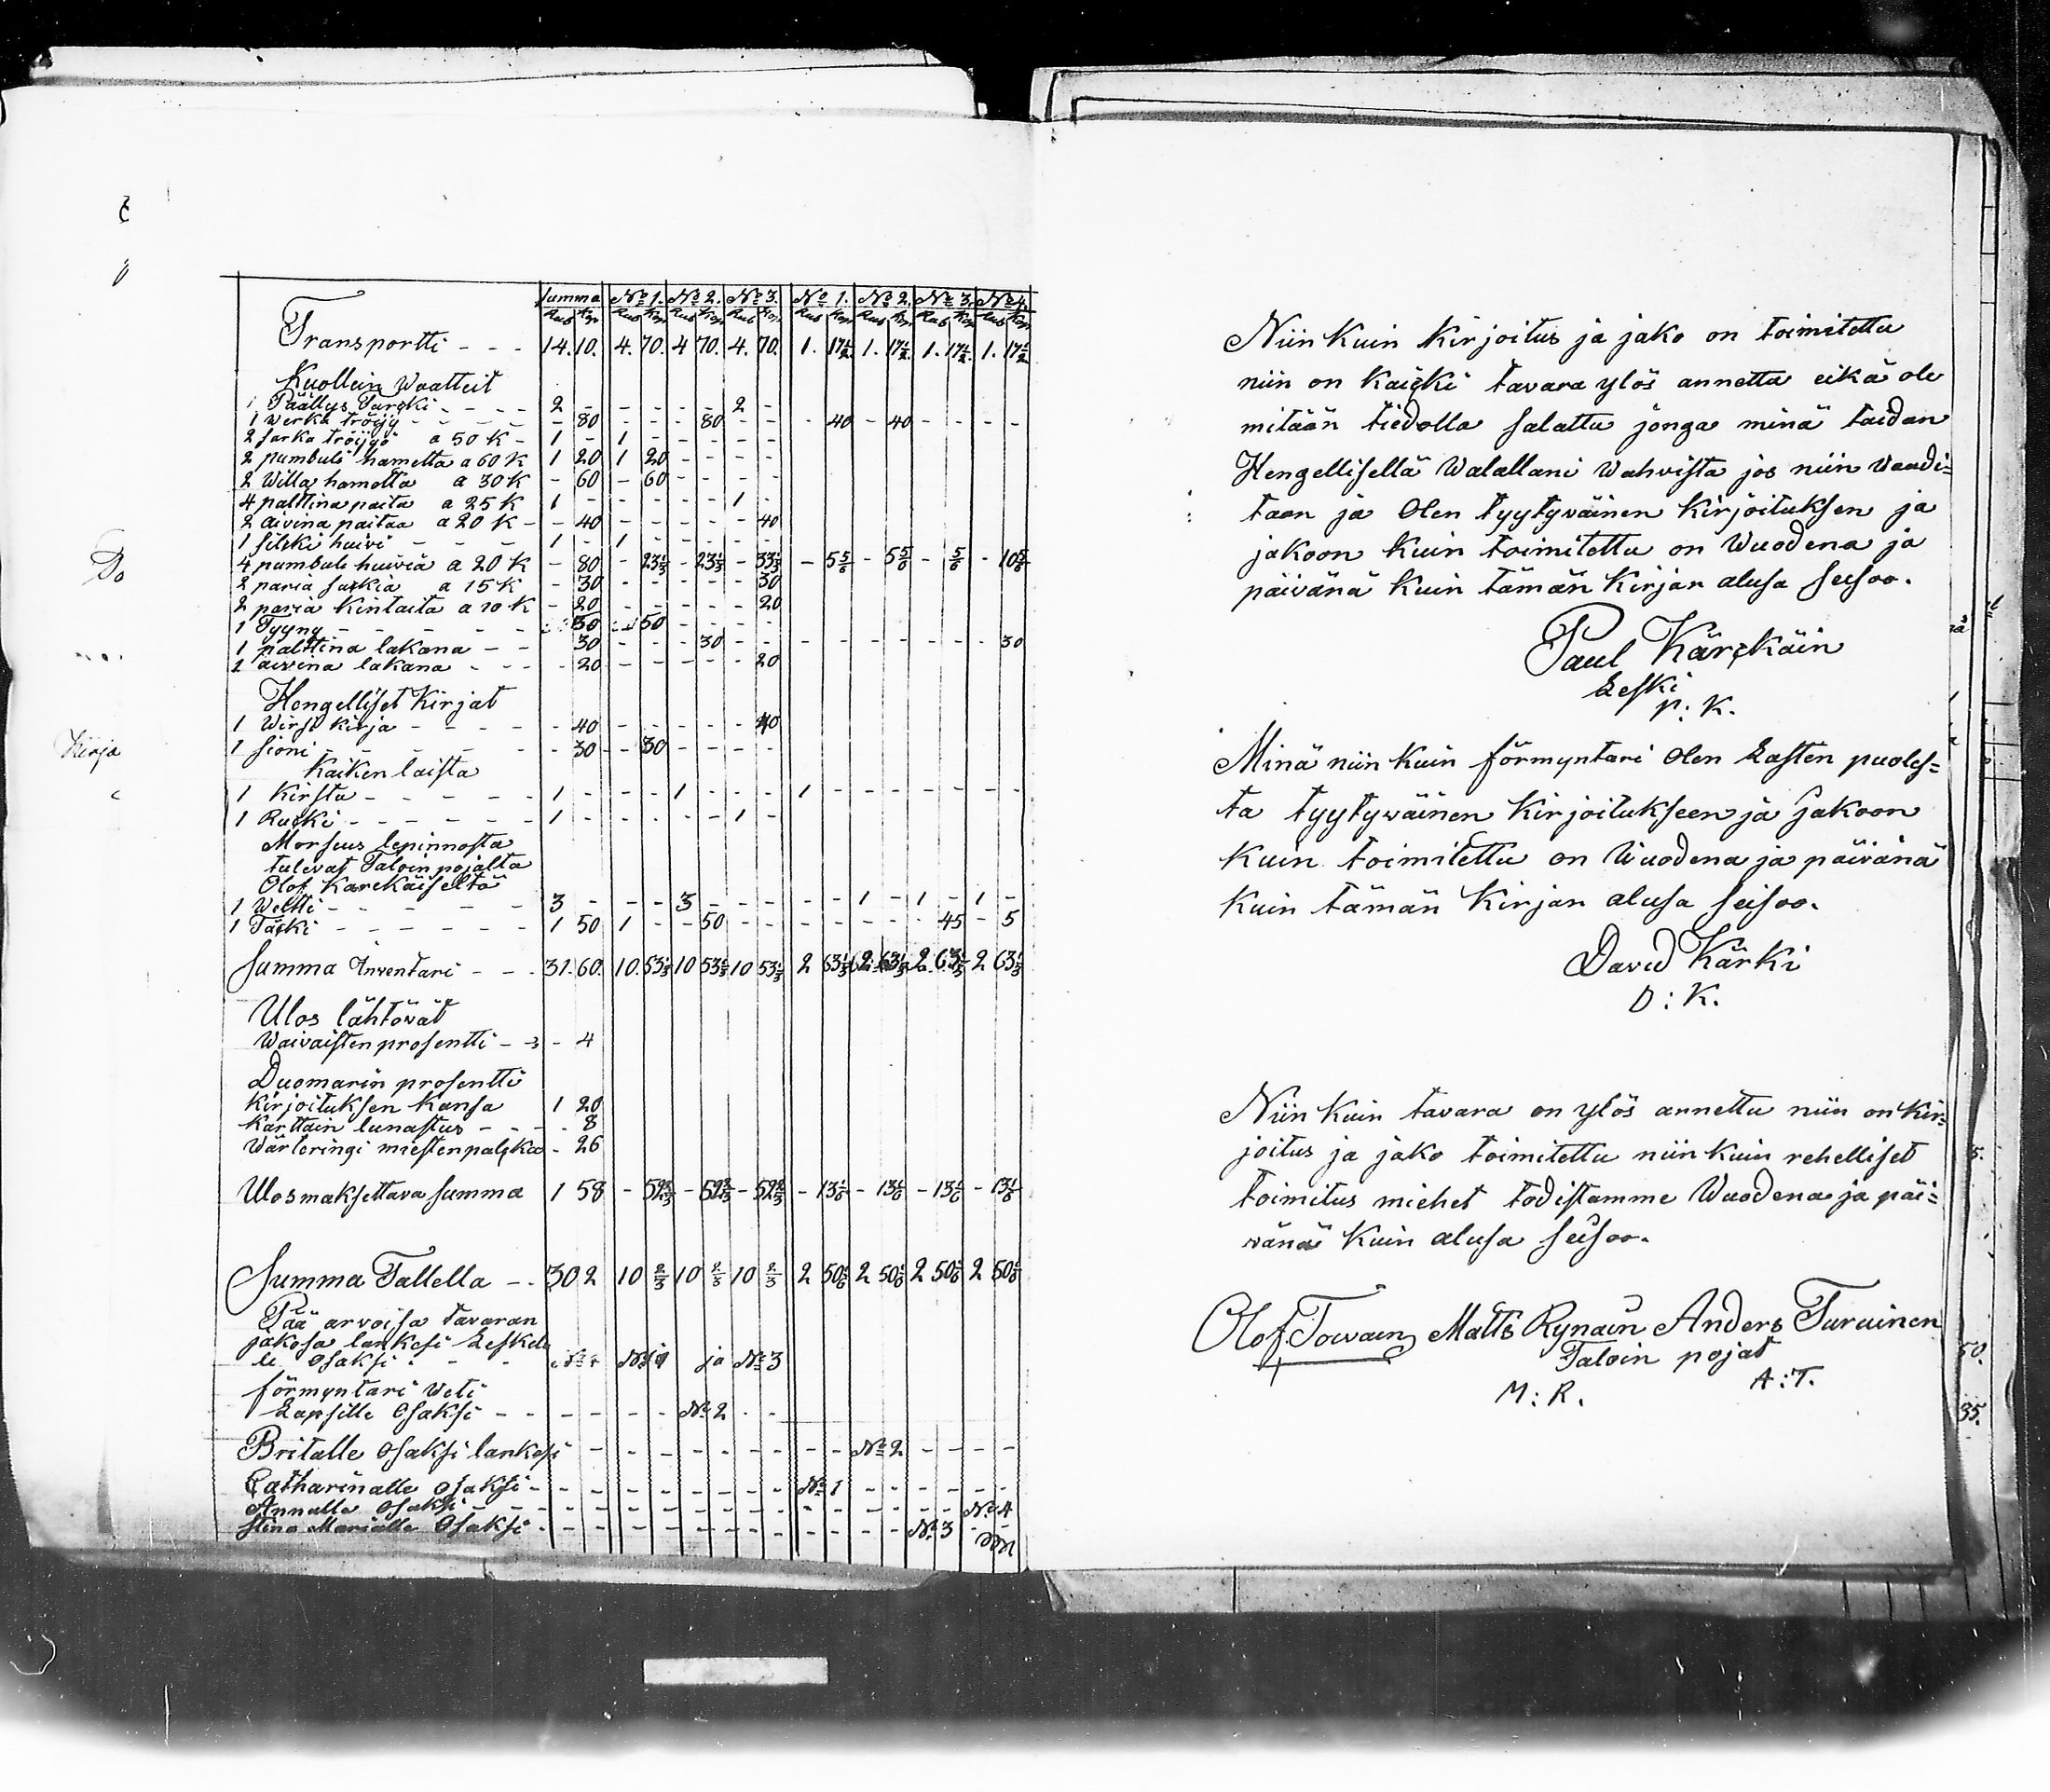 Summa | No 1. | No 2. | No 3. | No 1. | No 2. | No 3. | No 4.
Rub Kop | Rub Kop | Rub Kop | Rub Kop | Rub Kop | Rub Kop | Rub Kop | Rub Kop
Transportti - - - 14. 10. 4. 70. 4 70. 4. 70. 1. 17½ 1. 17½ 1. 17½ 1. 17½
Kuollein Waatteit
1 Päällys Turcki - - - - 2 - - - - - 2 -
1 Werka tröijy - - - - - 80 - - - 80 - - - 40 - 40 - - - -
2 sarka tröijyö a 50 K - 1 - 1 - - - - -
2 pumbuli hametta a 60 K 1 20 1 20 - - - -
2 Willa hametta a 30 K - 60 - 60 - - - -
4 palttina paita a 25 K 1 - - - - - 1 -
2 aivina paitaa a 20 K - - 40 - - - - - 40
1 silcki huivi - - - 1 - 1 - - - - -
4 pumbuli huivia a 20 K - 80 - 23⅓ - 23⅓ - 33⅓ - 5⅚ - 5⅚ - ⅚ - 10⅚
2 paria sukkia a 15 K - 30 - - - - - 30
2 paria Kintaita a 10 K - 20 - - - - - 20
1 Tyyny - - - - - - 50 - 50 - - - -
1 palttina lakana - - 30 - - - 30 - - - - - - - - - 30
1 aivina lakana - - - - 20 - - - - - 20
Hengelliset Kirjat
1 Wirsi kirja - - - - - 40 - - - - - 40
1 Sioni - - - - - - 30 - 30 - - - -
Kaiken laista
1 Kirstu - - - - - 1 - - - 1 - - - 1 - - - - - - -
1 Rucki - - - - - - 1 - - - - - 1 -
Morseus lepinnosta
tulevat Taloin pojalta
Olof Karckäiseltä
1 Weltti - - - - - 3 - - - 3 - - - - - 1 - 1 - 1 -
1 Täcki - - - - - - 1 50 1 - - 50 - - - - - - - 45 - 5
Summa Inventari - - - 31. 60. 10. 53⅓ 10 53⅓ 10 53⅓ 2 63⅓ 2 63⅓ 2 63⅓ 2 63⅓
Ulos lähtövät
Waivaisten prosentti - - - 4
Duomarin prosentti
Kirjoituksen Kansa 1 20
Karttain lunastus - - - - 8
Wärteringi miesten palcka - 26
Ulosmaksettava Summa 1 58 - 52⅔ - 52⅔ - 52⅔ - 13⅙ - 13⅙ - 13⅙ - 13⅙
Summa Tallella - . 30 2 10 ⅔ 10 ⅔ 10 ⅔ 2 50⅙ 2 50⅙ 2 50⅙ 2 50⅙
Pää arvoisa tavaran
jakosa lankesi Leskel
le Osaksi - - No 1 ja No 3
förmyntari Weti
Lapsille Osaksi - - - - - - No 2 - -
Britalle Osaksi lankesi - - - - - - - - - - No 2 - - - -
Catharinalle Osaksi - - - - - - - - - No 1 - - - - - -
Annalle Osaksi - - - - - - - - - - - - - - - No 4
Stina Marialle Osaksi - - - - - - - - - - - - - No 3 - -
Do
Kirja
Niin Kuin Kirjoitus ja jako on toimitettu
niin on Kaicki tavara ylös annettu eikä ole
mitään tiedolla salattu jonga minä taidan
Hengellisellä Walallani Wahvista jos niin Waadi=
taan ja Olen tyytyväinen Kirjoituksen ja
jakoon Kuin toimitettu on Wuodena ja
päivänä Kuin tämän Kirjan alusa seisoo.
Paul Kärckäin
Leski
P: K.
Minä niin Kuin förmyntari Olen Lasten puoles=
ta tyytyväinen Kirjoitukseen ja Jakoon
Kuin toimitettu on Wuodena ja päivänä
Kuin tämän Kirjan alusa seisoo.
David Kärki
D: K.
Niin Kuin tavara on ylös annettu niin on Kir=
joitus ja jako toimitettu niin Kuin rehelliset
toimitus miehet todistamme Wuodena ja päi=
vänä Kuin alusa seisoo.
Olof Towain Matts Rynäin Anders Turuinen
Taloin pojat
M: R. A: T.
50.
35.